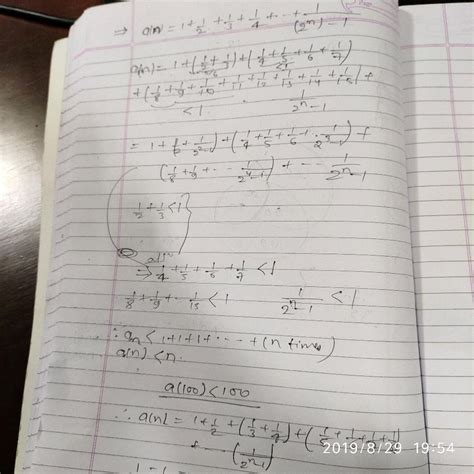 ⇒ a(n) = 1 + 1/2 + 1/3 + 1/4 + ... + 1/(2^n) - 1
a(n) = 1 + (1/2 + 1/3) + (1/4 + 1/5 + 1/6 + 1/7)
+ (1/8 + 1/9 + 1/10 + 1/11 + 1/12 + 1/13 + 1/14 + 1/15) +
<1 1/2^n-1
= 1 + (1/2 + 1/2^2-1) + (1/4 + 1/5 + 1/6 + 1/2^3-1) +
(1/8 + 1/9 + ... 1/2^4-1) + ... 1/2^n-1
1/2 + 1/3 < 1
⇒ 1/4 + 1/5 + 1/6 + 1/7 < 1
1/8 + 1/9 + ... 1/15 < 1 1/2^n-1 < 1
∴ an < 1+1+1+ ... + (n times)
a(n) < n
a(100) < 100
∴ a(n) = 1 + 1/2 + (1/3 + 1/4) + (1/5 + 1/6 + 1/7 + 1/8)
+ ... (1/2^n-1)
2019/8/29 19:54